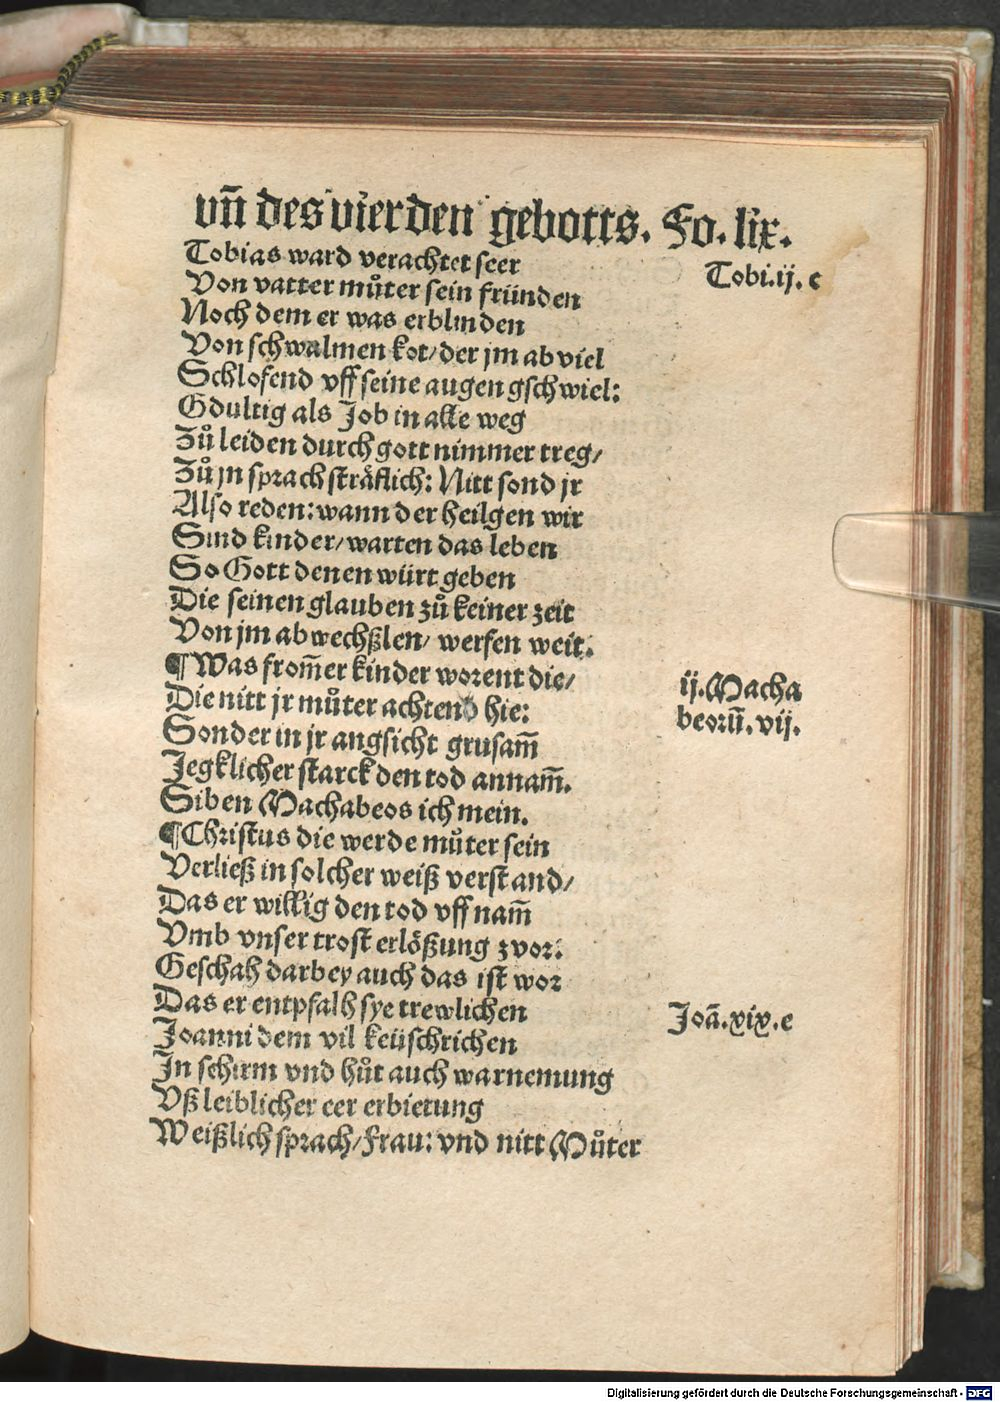 vñ des vierden gebotts. Fo. lix.
Tobias ward verachtet seer
Tobi.ij. c
Von vatter můter sein fründen
Noch dem er was erblinden
Von schwalmen kot/ der jm ab viel
Schlofend vff seine augen gschwiel:
Gdultig als Job in alle weg
Zů leiden durch gott nimmer treg/
Zů jn sprach sträflich: Nitt sond jr
Also reden: wann der heilgen wir
Sind kinder/ warten das leben
So Gott denen würt geben
Die seinen glauben zů keiner zeit
Von jm abwechßlen/ werfen weit.
¶ Was from̃er kinder worent die/
ij. Macha
Die nitt jr můter achtend hie:
beorũ. vij.
Sonder in jr angsicht grusam̃
Jegklicher starck den tod annam̃.
Siben Machabeos ich mein.
¶ Christus die werde můter sein
Verließ in solcher weiß verstand/
Das er willig den tod vff nam̃
Vmb vnser trost erlößung zvor.
Geschah darbey auch das ist wor
Das er entpfalh sye trewlichen
Joã. xix. e
Joanni dem vil keüschrichen
In schirm vnd hůt auch warnemung
Vß leiblicher eer erbietung
Weißlich sprach/ Frau: vnd nitt Můter
Digitalisierung gefördert durch die Deutsche Forschungsgemeinschaft - DFG